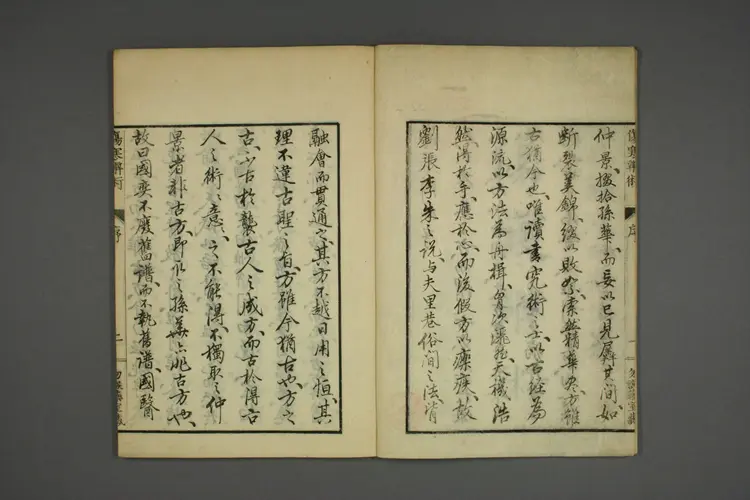 傷寒辨術 序 一
仲景摭拾孫華而妄以已見厲其間如
断裂美錦綴以敗絮索然精華尽方雖
古猶今也唯讀書究術之士以古經為
源流以方法為舟楫胷次洒然天機浩
然得於手應於心而後假方以療疾故
劉張李朱之説与夫里巷俗間之法皆
融會而貫通之其方不越日用之恒其
理不違古聖之旨方雖今猶古也方之
古不古於襲古人之成方而古於得古
人之術之意之不能得不獨取之仲
景者非古方即取之孫華亦非古方也
故曰國奕不廢舊譜而不執舊譜國醫
傷寒辨術 序 二